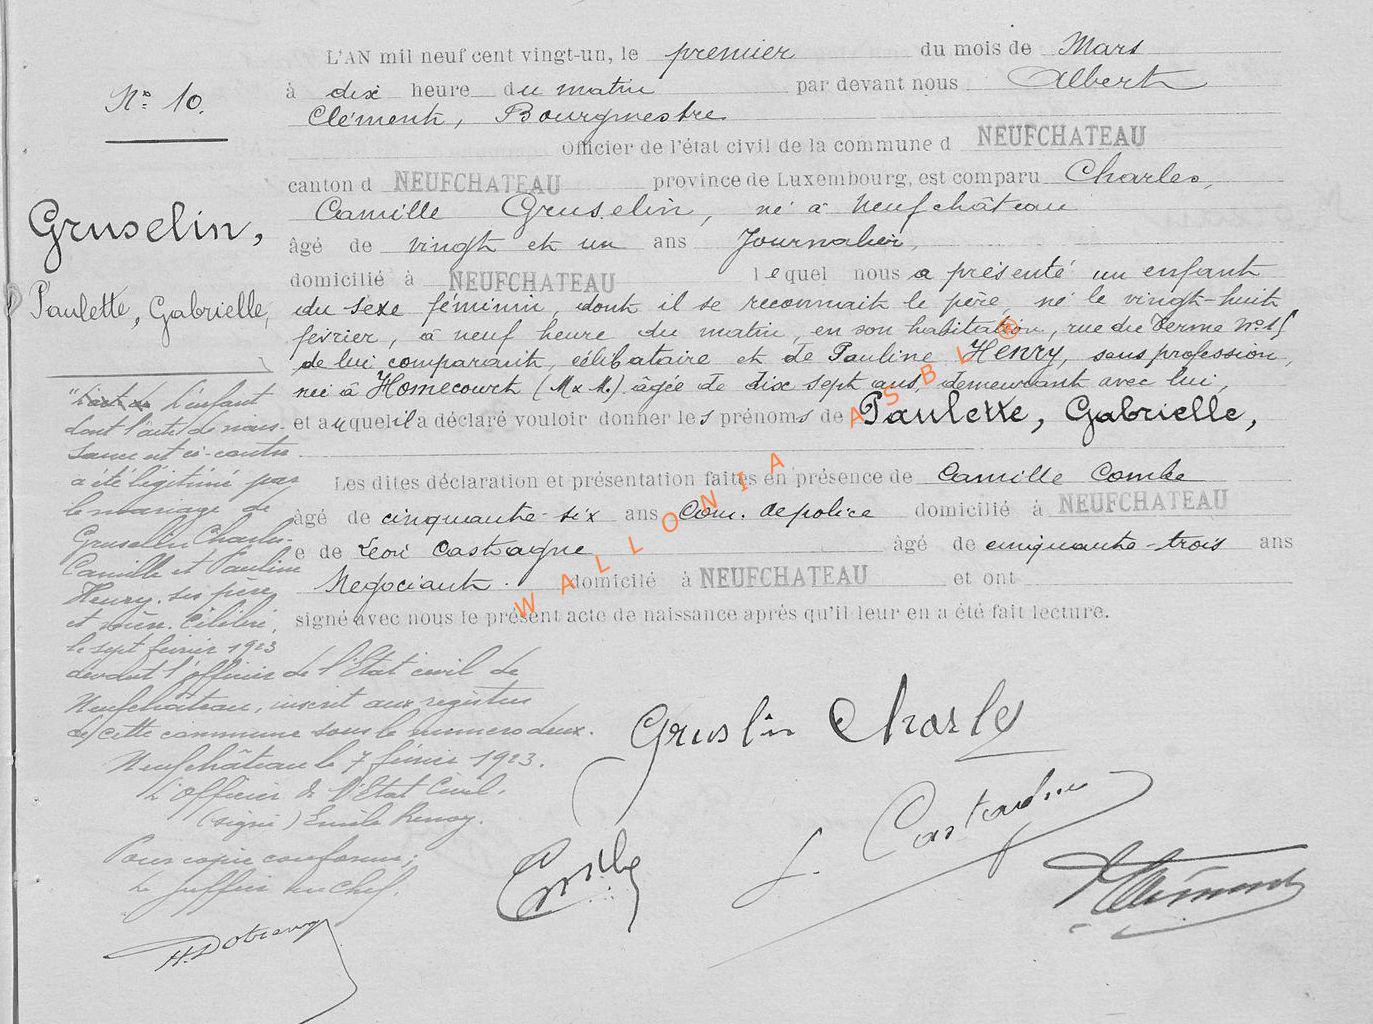 L'AN mil neuf cent vingt-un, le premier du mois de Mars
à dix heure du matin par devant nous Albert
Clément, Bourgmestre
officier de l'état civil de la commune d NEUFCHATEAU
canton d NEUFCHATEAU province de Luxembourg, est comparu Charles,
Camille Gruselin, né à Neufchâteau
âgé de vingt et un ans Journalier,
domicilié à NEUFCHATEAU lequel nous a présenté un enfant
du sexe féminin, dont il se reconnait le père, né le vingt-huit
février, à neuf heure du matin, en son habitation, rue du Terme No 15
de lui comparant, célibataire et de Pauline Henry, sans profession,
née à Homecourt (M & M.) âgée de dix sept ans, demeurant avec lui,
et auquel il a déclaré vouloir donner les prénoms de Paulette, Gabrielle,
Les dites déclaration et présentation faites en présence de Camille Combe
âgé de cinquante-six ans Com. de police domicilié à NEUFCHATEAU
e de Léon Castagne âgé de cinquante-trois ans
Négociant. domicilié à NEUFCHATEAU et ont
signé avec nous le présent acte de naissance après qu'il leur en a été fait lecture.
No 10.
Gruselin,
Paulette, Gabrielle,
L'enfant
dont l'acte de nais-
sance est ci-contre
a été légitimé par
le mariage de
Gruselin Charles-
Camille et Pauline
Henry. ses père
et mère. Célébré
le sept février 1923
devant l'officier de l'Etat civil de
Neufchâteau, inscrit aux registres
de cette commune sous le numero deux.
Neufchâteau le 7 février 1923.
L'officier de l'Etat Civil.
(signé) Emile
Pour copie conforme;
Le Greffier en Chef,
Gruslin Charles
L. Castagne
Clément
WALLONIA ASBL ®